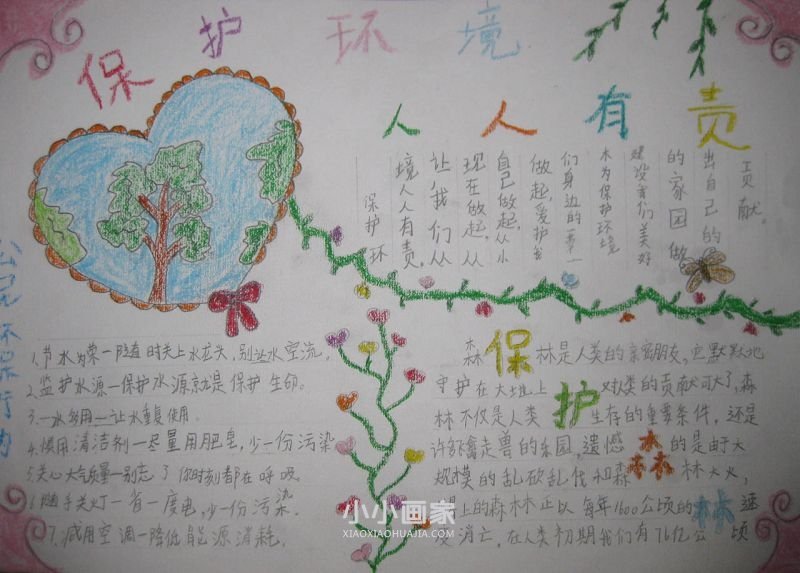 保护环境
人人有责
保护环
境人人有责,
让我们从
现在做起,从
自己做起,从小
做起,爱护我
们身边的第一
木为保护环境
建设我们美好
的家园做
出自己的
贡献。
公民环保行为
1.节水为荣—随时关上水龙头,别让水空流,
2.监护水源—保护水源就是保护生命。
3.一水多用—让水重复使用。
4.慎用清洁剂—尽量用肥皂,少一份污染
5.关心大气质量—别忘了你时刻都在呼吸
6.随手关灯—省一度电,少一份污染.
7.减用空调—降低能源消耗.
保护森林
森林是人类的亲密朋友,它默默地
守护在大地上 对人类的贡献可大了,森
林不仅是人类生存的重要条件,还是
许多禽走兽的乐园,遗憾的是由于大
规模的乱砍乱伐和森林大火,
上的森林正以每年1600公顷的速
消亡,在人类初期我们有76亿公顷
小小画家
XIAOXIAOHUAJIA.COM